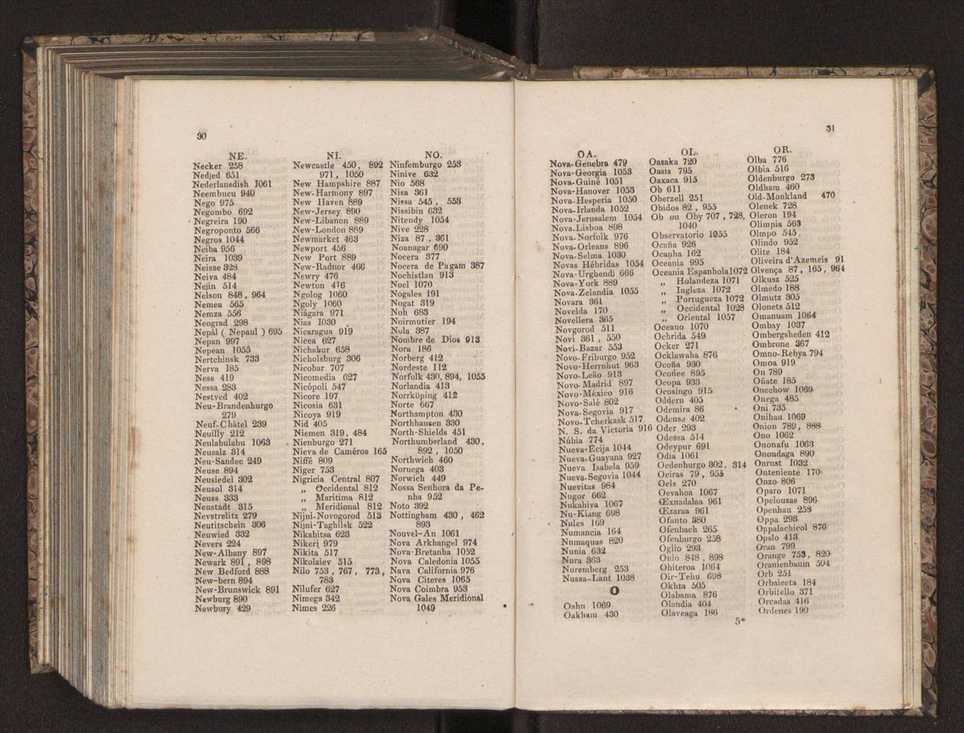 30
NE.
Necker 258
Nedjed 651
Nederlansdish 1061
Neembucu 940
Nego 975
Negombo 692
Negreira 190
Negroponto 566
Negros 1044
Neiba 956
Neira 1039
Neisse 328
Neiva 484
Nejin 514
Nelson 848, 964
Nemea 565
Nemza 556
Neograd 298
Nepál ( Nepaul ) 695
Nepan 997
Nepean 1055
Nertchinsk 733
Nerva 185
Ness 419
Nessa 283
Nestved 402
Neu-Brandenburgo
279
Neuf-Châtel 239
Neuilly 212
Neulabulabu 1063
Neusalz 314
Neu-Sandec 249
Neuse 894
Neusiedel 302
Neusol 314
Neuss 333
Neustadt 315
Nevstrelitz 279
Neutitschein 306
Neuwied 332
Nevers 224
New-Albany 897
Newark 891, 898
New Bedford 888
New-bern 894
New-Brunswick 891
Newburg 890
Newbury 429
NI.
Newcastle 450, 892
971, 1050
New Hampshire 887
New-Harmony 897
New Haven 889
New-Jersey 890
New-Libanon 889
New-London 889
Newmarket 463
Newport 456
New Port 889
New-Radnor 466
Newry 476
Newton 416
Ngolog 1060
Ngoly 1060
Niágara 971
Nias 1030
Nicaragua 919
Nicea 627
Nichabur 658
Nicholsburg 306
Nicobar 707
Nicomedia 627
Nicópoli 547
Nicore 197
Nicosia 631
Nicoya 919
Nid 405
Niemen 319, 484
Nienburgo 271
Nieva de Caméros 165
Niffé 809
Niger 753
Nigricia Central 807
„ Occidental 812
„ Maritima 812
„ Meridional 812
Nijni-Novogorod 513
Nijni-Taghilsk 522
Nikabitsa 623
Nikeri 979
Nikita 517
Nikolaiev 515
Nilo 753, 767, 773,
783
Nilufer 627
Nimega 342
Nimes 226
NO.
Ninfemburgo 253
Ninive 632
Nio 568
Nisa 361
Nissa 545, 553
Nissibin 632
Nitendy 1054
Nive 228
Niza 87, 361
Noanagar 690
Nocera 377
Nocera de Pagam 387
Nochistlan 913
Noel 1070
Nogales 191
Nogat 319
Noh 683
Noirmutier 194
Nola 387
Nombre de Dios 913
Nora 186
Norberg 412
Nordeste 112
Norfolk 430, 894, 1055
Norlandia 413
Norrköping 412
Norte 667
Northampton 430
Northhausen 330
North-Shields 451
Northumberland 430,
892, 1050
Northwich 460
Noruega 403
Norwich 449
Nossa Senhora da Pe-
nha 952
Noto 392
Nottingham 430, 462
893
Nouvel-An 1061
Nova Arkhangel 974
Nova-Bretanha 1052
Nova Caledonia 1055
Nava California 976
Nova Citeres 1065
Nova Coimbra 953
Nova Gales Meridional
1049
31
OA.
Nova-Genebra 479
Nova-Georgia 1053
Nova-Guiné 1051
Nova-Hanover 1053
Nova-Hesperia 1050
Nova-Irlanda 1052
Nova-Jerusalem 1054
Nova-Lisboa 898
Nova-Norfolk 976
Nova-Orleans 896
Nova-Selma 1030
Novas Hébridas 1054
Nova-Urghendj 666
Nova-York 889
Nova-Zelandia 1055
Novara 361
Novelda 170
Novellera 365
Novgorod 511
Novi 361, 550
Novi-Bazar 553
Novo-Friburgo 952
Novo-Herrnhut 963
Novo-Leão 913
Novo-Madrid 897
Novo-México 916
Novo-Salé 802
Nova-Segovia 917
Novo-Tcherkask 517
N. S. da Victoria 916
Núbia 774
Nueva-Ecija 1044
Nueva-Guayana 927
Nueva Isabela 959
Nueva-Segovia 1044
Nuevitas 984
Nugor 662
Nukahiva 1067
Nu-Kiang 698
Nules 169
Numancia 164
Numaquas 820
Nunia 632
Nura 363
Nuremberg 253
Nussa-Laut 1038
O
Oahu 1069
Oakham 430
OI.
Oasaka 720
Oasis 795
Oaxaca 915
Ob 611
Oberzell 251
Obidos 82, 955
Ob ou Oby 707, 728,
1040
Observatorio 1055
Ocaña 926
Ocanha 162
Oceania 995
Oceania Espanhola 1072
„ Holandeza 1071
„ Ingleza 1072
„ Portugueza 1072
„ Occidental 1028
„ Oriental 1057
Oceano 1070
Ochrida 549
Ocker 271
Ocklawaha 876
Ocoña 930
Ocoñee 895
Ocopa 933
Ocosingo 915
Oddern 405
Odemira 86
Odensé 402
Oder 293
Odessa 514
Odeypur 691
Odia 1061
Oedenburgo 302, 314
Oeiras 79, 955
Oels 270
Oevahoa 1067
Œxnadalaa 961
Œxaraa 961
Ofanto 380
Ofenbach 265
Ofenburgo 258
Oglio 293
Ohio 848, 898
Ohiteroa 1064
Oir-Tehu 698
Okhta 505
Olabama 876
Olandia 404
Olaveaga 186
OR.
Olba 776
Olbia 516
Oldenburgo 273
Oldham 460
Old-Monkland 470
Olenek 728
Oleron 194
Olimpia 563
Olmpo 545
Olindo 952
Olite 184
Oliveira d'Azemeis 91
Olvença 87, 165, 964
Olkusz 525
Olmedo 188
Olmutz 305
Olonets 512
Omanuam 1064
Ombay 1037
Ombergsheden 412
Ombrone 367
Omno-Rebya 794
Omoa 919
On 789
Oñate 185
Oneehow 1069
Onega 485
Oni 735
Onihau 1069
Onion 789, 888
Ono 1062
Ononafu 1063
Onondaga 890
Onrust 1032
Onteniente 170
Onzo 806
Oparo 1071
Opelousas 896
Openhau 258
Oppa 293
Oppalachicol 876
Opslo 413
Oran 799
Orange 753, 820
Oranienbaum 504
Orb 251
Orbaiceta 184
Orbitello 371
Orcadas 416
Ordenes 190
5*